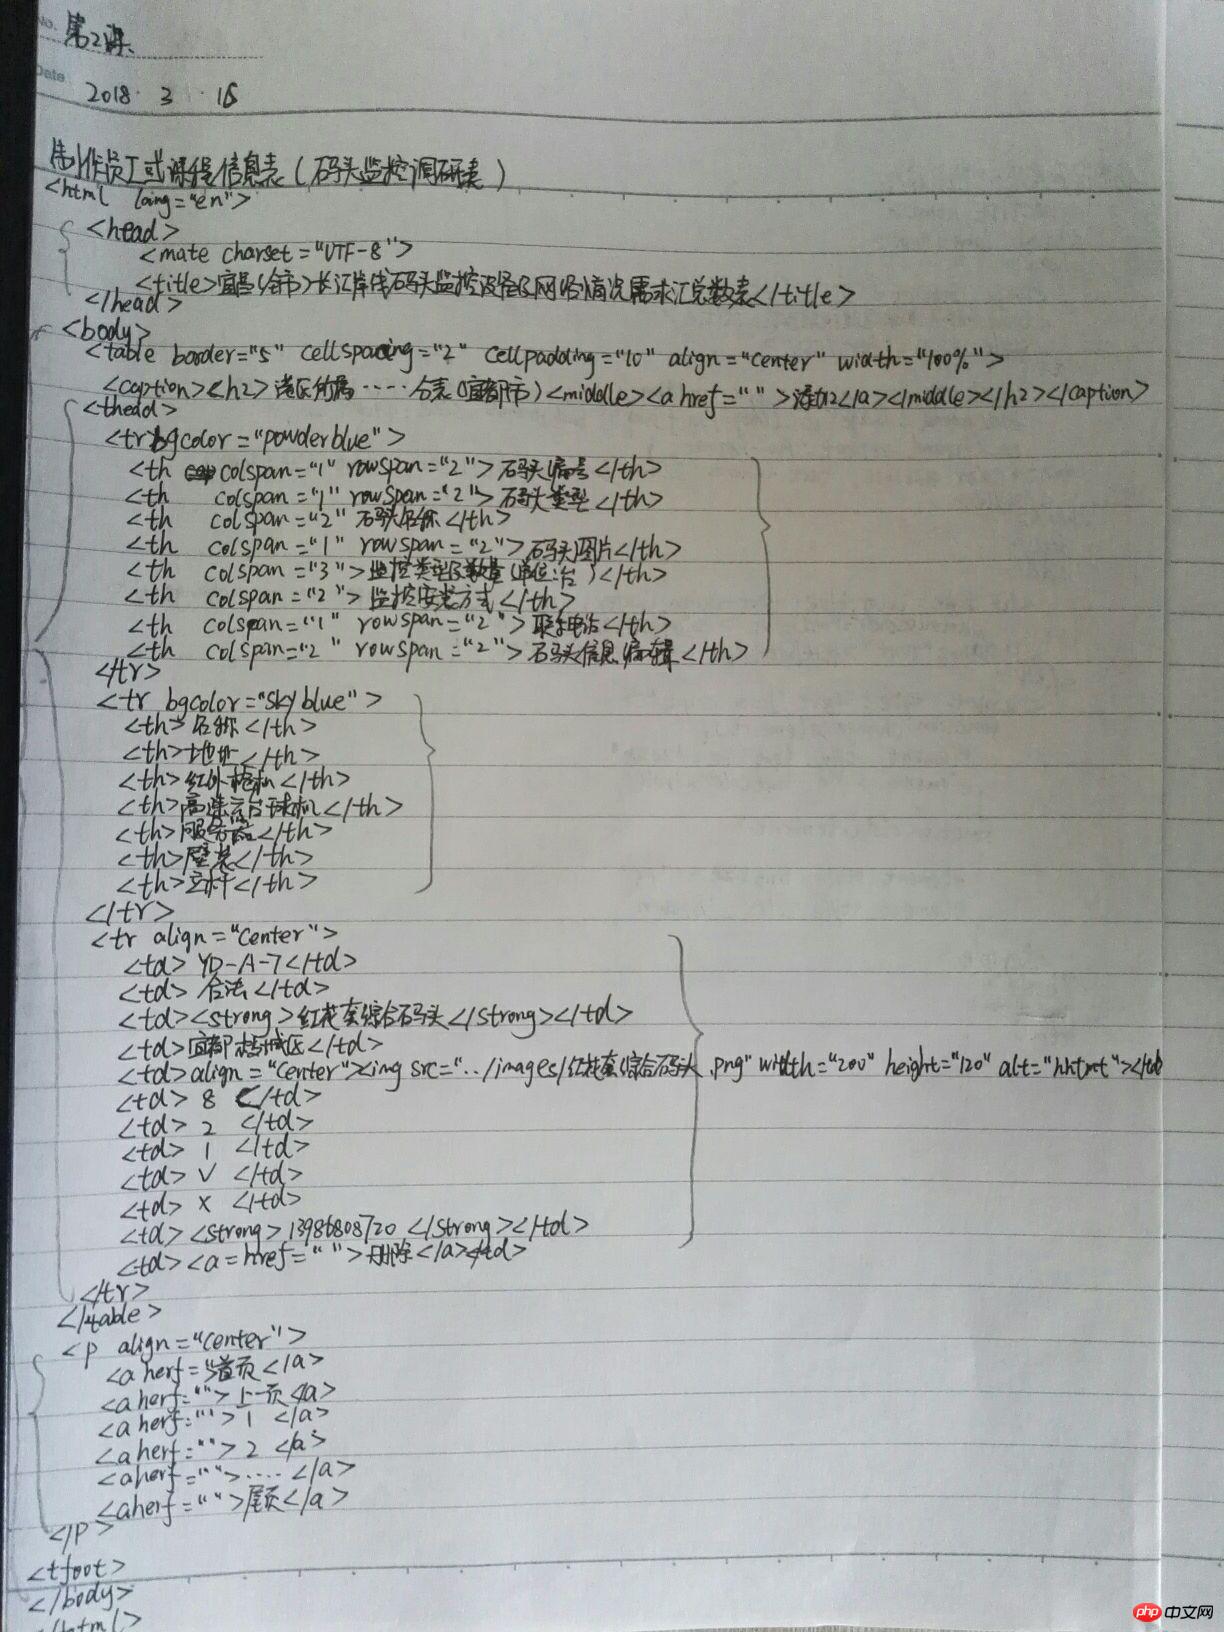 No. 第2课
Date 2018 3 15
制作员工或课程信息表(码头监控调研表)
<html lang="en">
<head>
<mate charset="UTF-8">
<title>宜昌(全市)长江岸线码头监控设备及网络情况需求汇总数表</title>
</head>
<body>
<table border="5" cellspacing="2" cellpadding="10" align="center" width="100%">
<caption><h2>港区所属·····分表(宜都市)<middle><a href="">添加</a></middle></h2></caption>
<thead>
<tr bgcolor="powderblue">
<th colspan="1" rowspan="2">码头编号</th>
<th colspan="1" rowspan="2">码头类型</th>
<th colspan="2" 码头名称</th>
<th colspan="1" rowspan="2">码头图片</th>
<th colspan="3">监控类型及数量(单位:台)</th>
<th colspan="2">监控安装方式</th>
<th colspan="1" rowspan="2">联系电话</th>
<th colspan="2" rowspan="2">码头信息编辑</th>
</tr>
<tr bgcolor="skyblue">
<th>名称</th>
<th>地址</th>
<th>红外枪机</th>
<th>高速云台球机</th>
<th>服务器</th>
<th>壁装</th>
<th>立杆</th>
</tr>
<tr align="center">
<td>YD-A-7</td>
<td>合法</td>
<td><strong>红花套综合码头</strong></td>
<td>宜都 城区</td>
<td>align="center"><img src="../images/红花套综合码头.png" width="200" height="120" alt="hhtmt"></td
<td>8</td>
<td>2</td>
<td>1</td>
<td>V</td>
<td>x</td>
<td><strong>13986808720</strong></td>
<td><a=href="">删除</a></td>
</tr>
</table>
<p align="center">
<a herf="">首页</a>
<a herf="">上一页<a>
<a herf="">1</a>
<a herf="">2</a>
<a herf="">····</a>
<a herf="">尾页</a>
</p>
<tfoot>
</body>
</html>
php中文网